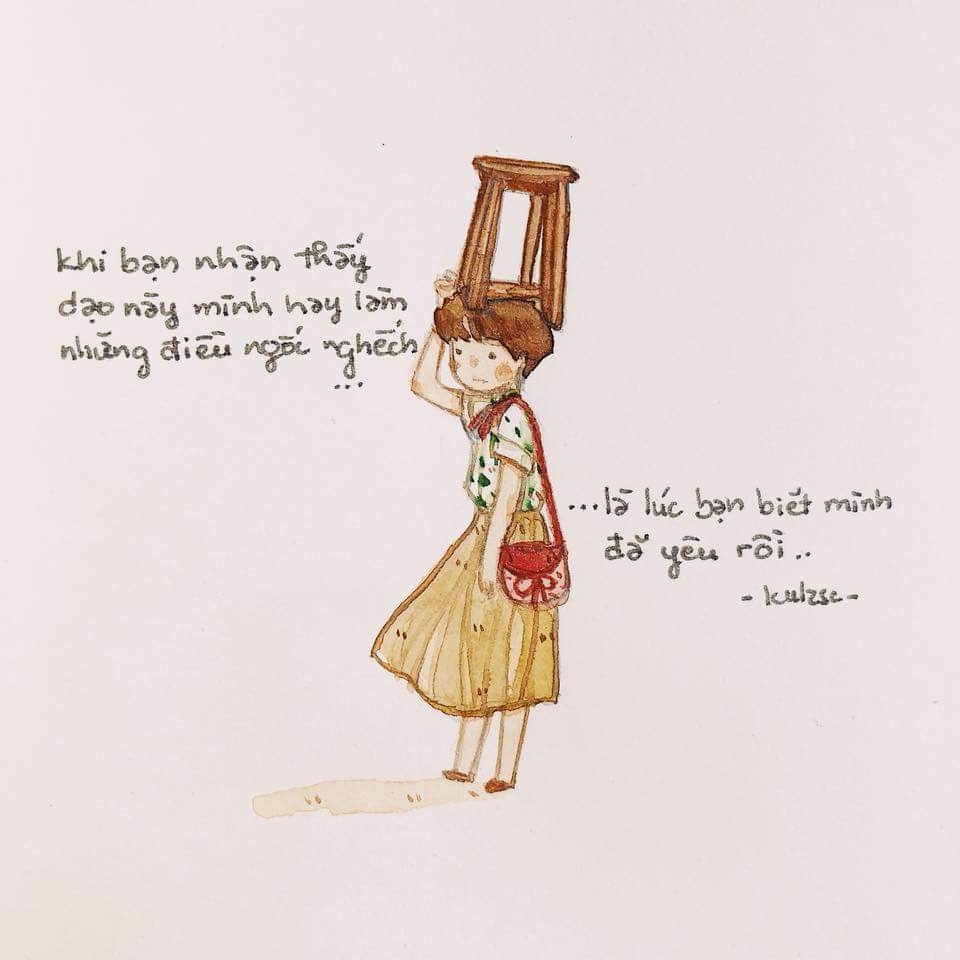 khi bạn nhận thấy
dạo này mình hay làm
những điều ngốc nghếch
...
...là lúc bạn biết mình
đã yêu rồi..
- kulzsc -